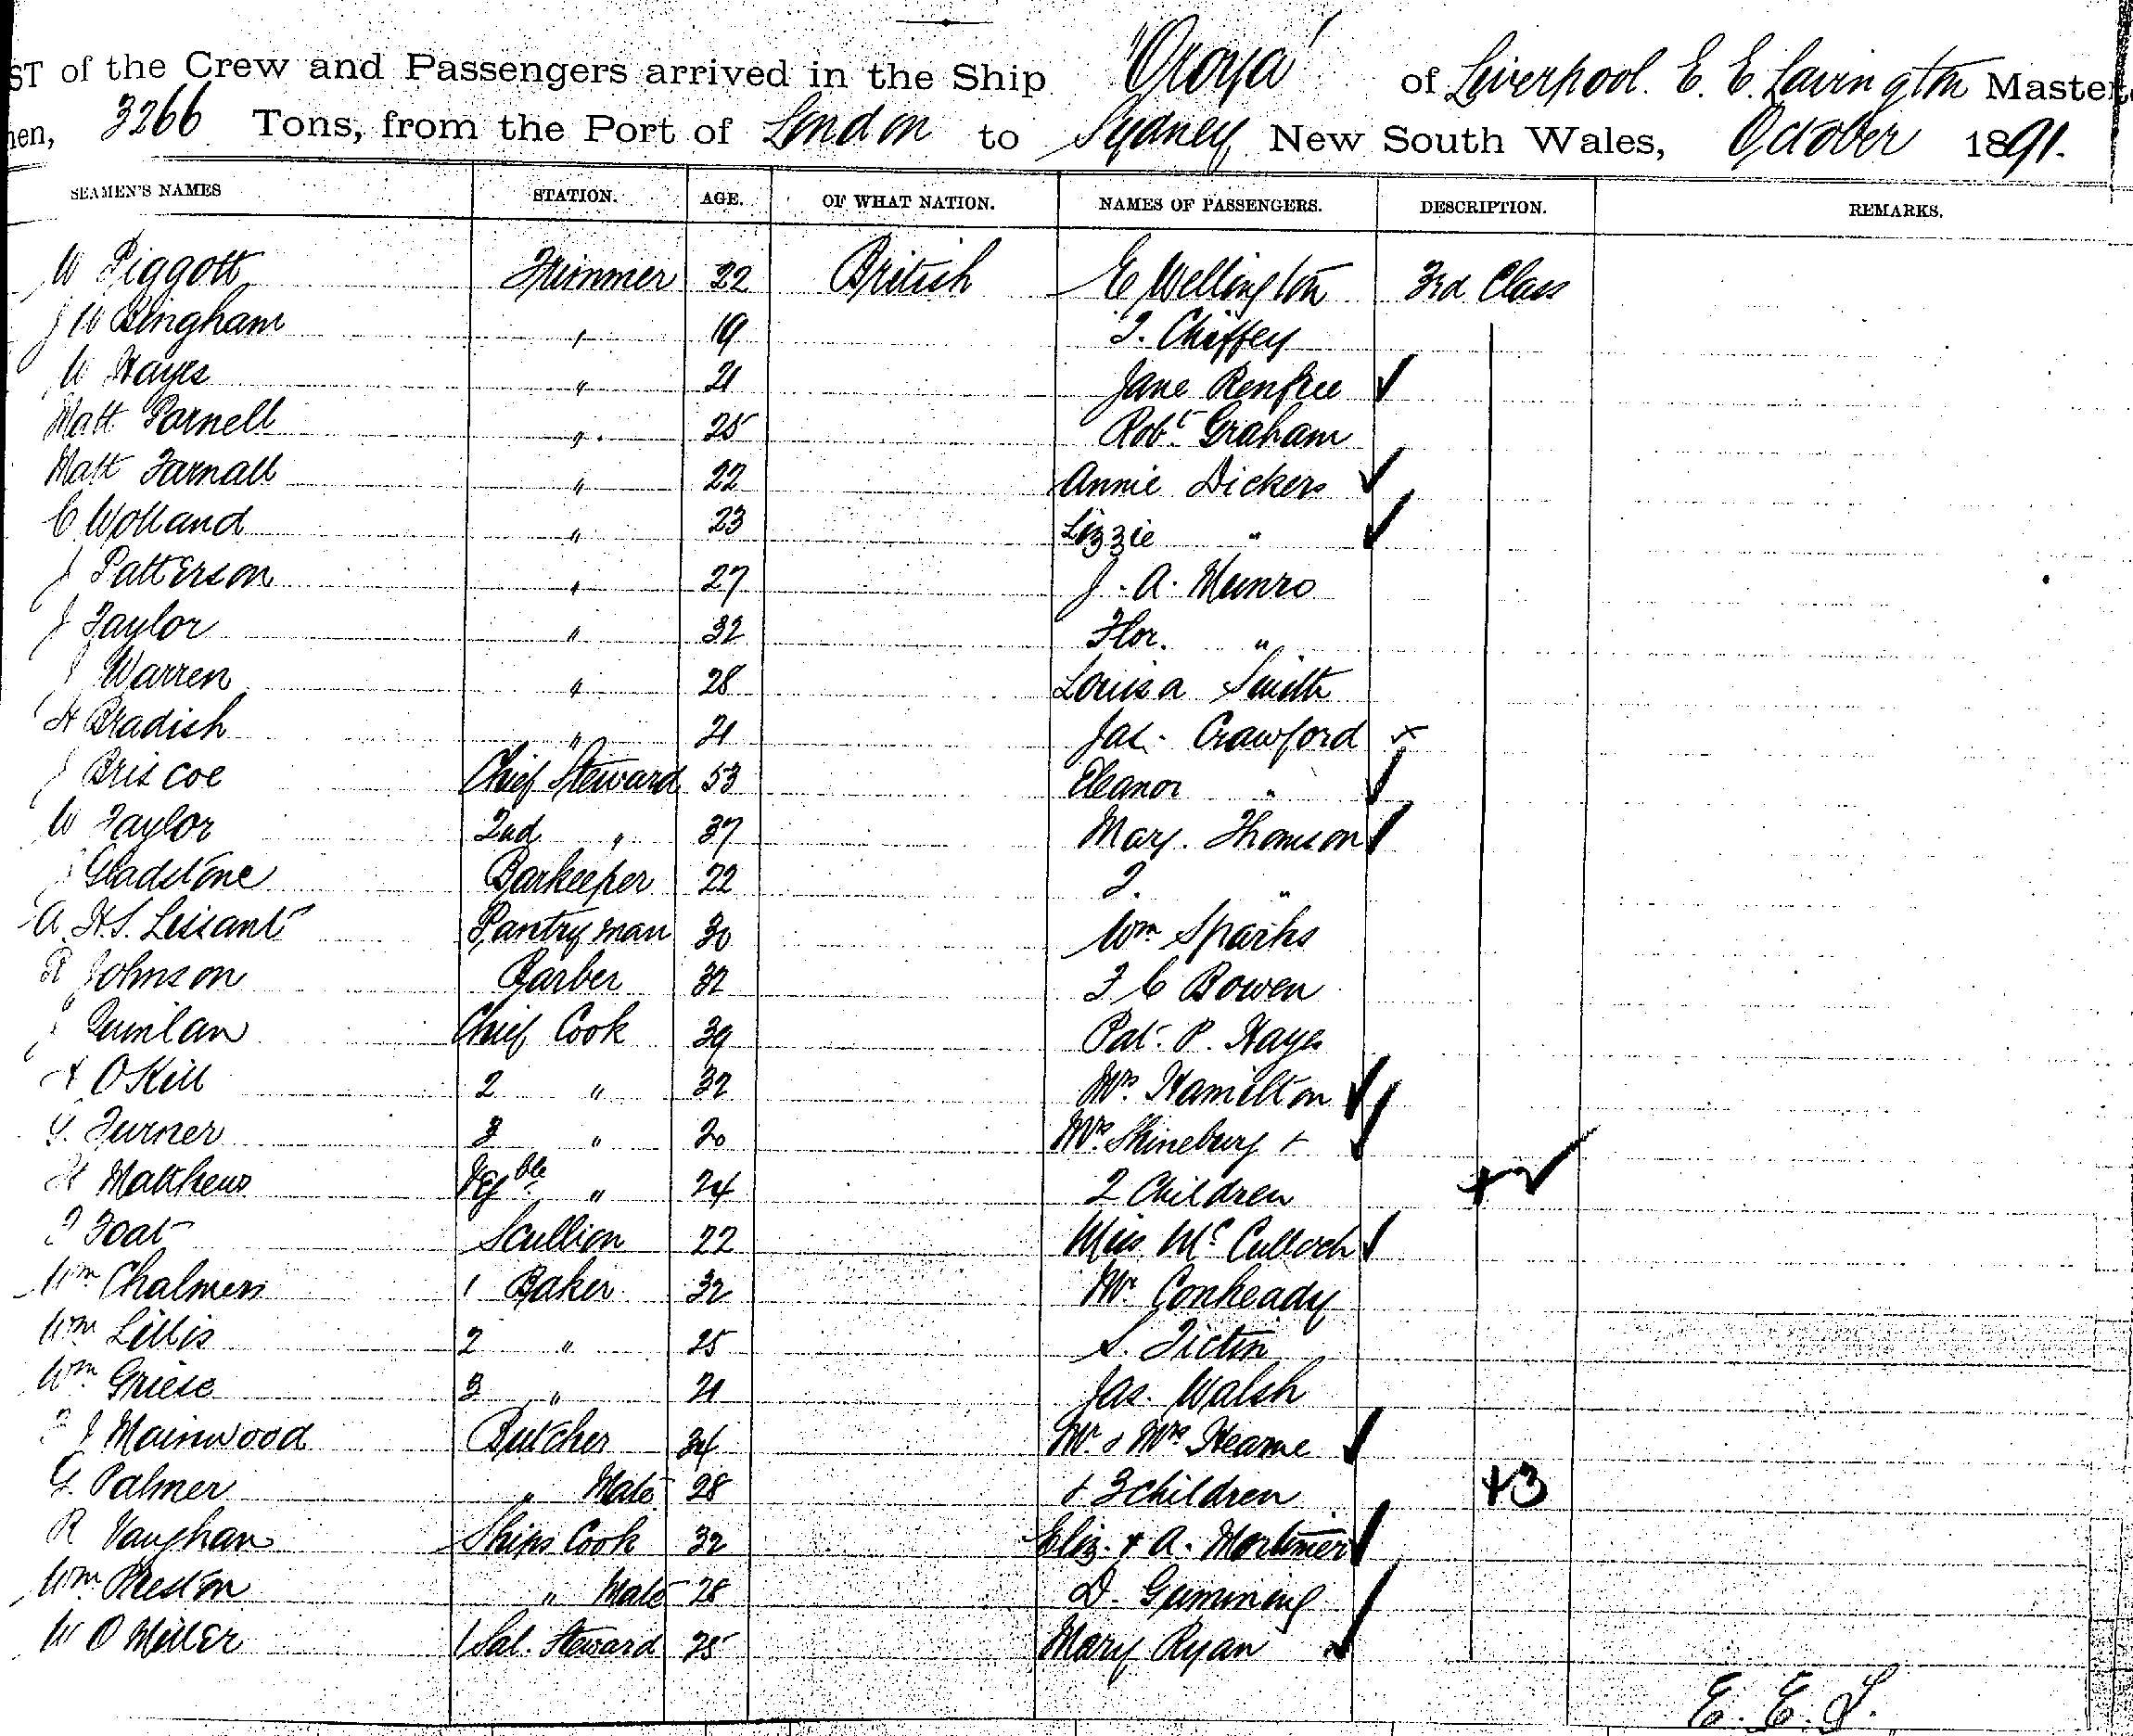 ST of the Crew and Passengers arrived in the Ship "Oroya" of Liverpool. E. E. Lavington Master,
men, 3266 Tons, from the Port of London to Sydney New South Wales, October 1891.
SEAMEN'S NAMES STATION. AGE. OF WHAT NATION. NAMES OF PASSENGERS. DESCRIPTION. REMARKS.
W Piggott Trimmer 22 British E Wellington 3rd Class
J W Bingham " 19 T. Chiffey
W Hayes " 21 Jane Renfree
Matt Parnell " 25 Robt Graham
Matt Farnall " 22 Annie Dickers
C Wolland " 23 Lizzie "
J Patterson " 27 J. A. Munro
J Taylor " 32 Flor. "
J Warren " 28 Louisa Smith
H Bradish " 21 Jas. Crawford x
J Briscoe Chief Steward 53 Eleanor "
W Taylor 2nd " 37 Mary Thomson
Gladstone Barkeeper 22 T. "
A. H.S. Lessant Pantryman 30 Wm Sparks
R Johnson Barber 32 F C Bowen
Quinlan Chief Cook 39 Pat. P. Hayes
H OKill 2 " 32 Mrs Hamilton
G. Turner 3 " 20 Mrs Shinebury +
H Matthews Vegble " 24 2 Children +
T Foat Scullion 22 Miss McCulloch
Wm Chalmers 1 Baker 32 Mr Conheady
Wm Lillis 2 " 25 S.
Wm Griese 3 " 21 Jas. Walsh
J Mainwood Butcher 34 Mr & Mrs Hearne
G. Palmer " Mate 28 & 3 children +3
R Vaughan Ships Cook 32 Eliz. & A. Mortimer
Wm Preston " Mate 28 D. Gumming
W O Miller 1 Sal. Steward 25 Mary Ryan
E. E. L.